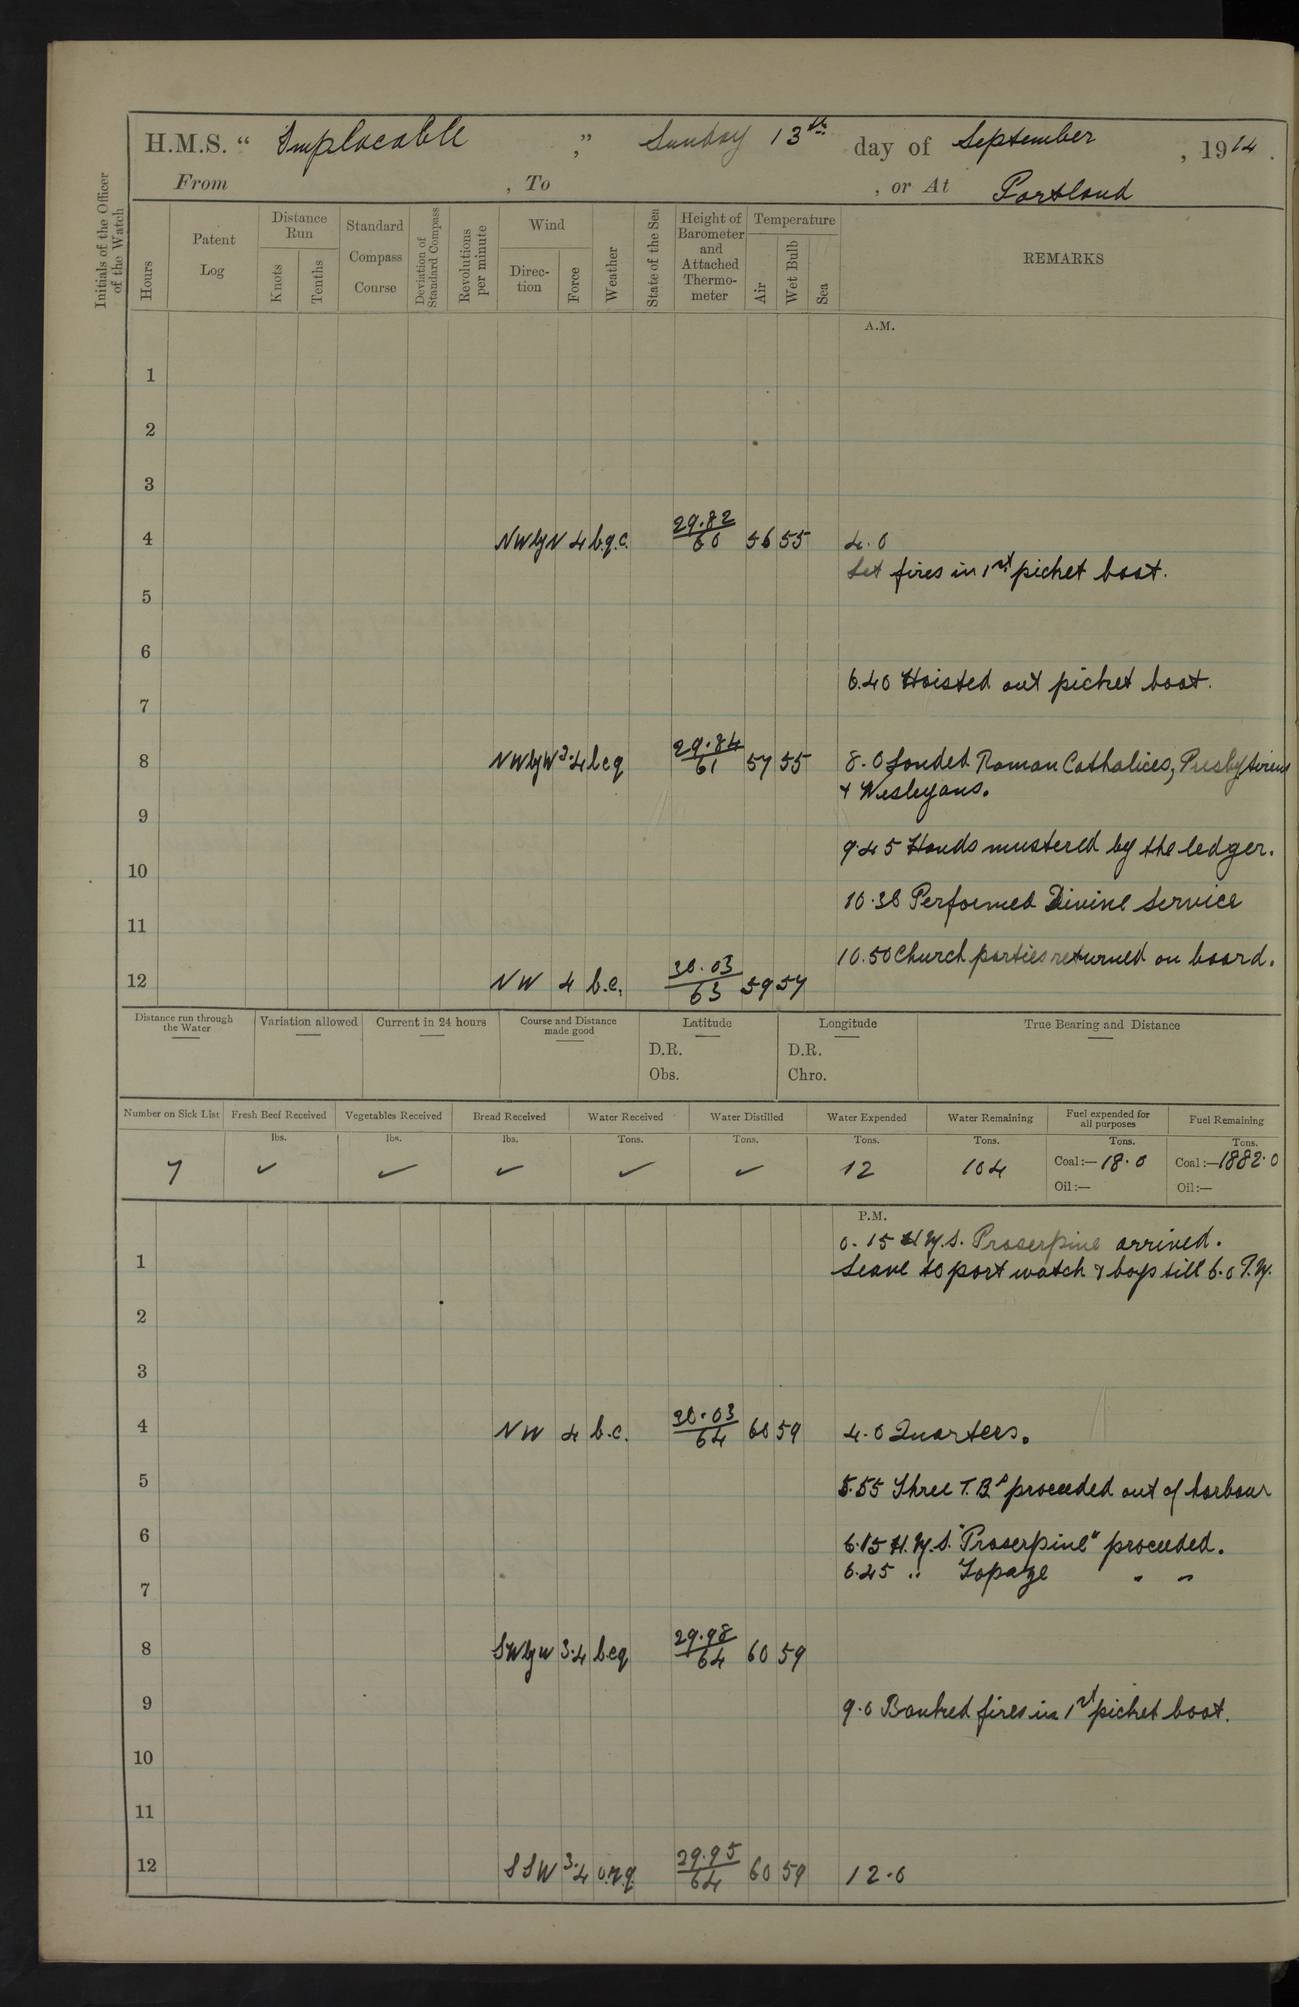 H.M.S. “ Implacable ,” Sunday 13th day of September , 1914.
From , To , or At Portland
Initials of the Officer of the Watch
Hours
Patent Log
Distance Run
Knots
Tenths
Standard Compass Course
Deviation of Standard Compass
Revolutions per minute
Wind
Direc-tion
Force
Weather
State of the Sea
Height of Barometer and Attached Thermo-meter
Temperature
Air
Wet Bulb
Sea
REMARKS
A.M.
1
2
3
4 NWbyN 4 b.q.c. 29.82/60 56 55 4.0
Let fires in 1st picket boat.
5
6
6.40 Hoisted out picket boat.
7
8 NWbyW 3.4 bcq 29.84/61 57 55 8.0 Landed Roman Catholices, Presbyteriens
& Wesleyans.
9
9.45 Hands mustered by the ledger.
10
10.30 Performed Divine Service
11
10.50 Church parties returned on board.
12 NW 4 b.c. 30.03/63 59 57
Distance run through the Water
Variation allowed
Current in 24 hours
Course and Distance made good
Latitude
Longitude
True Bearing and Distance
D.R. D.R.
Obs. Chro.
Number on Sick List Fresh Beef Received Vegetables Received Bread Received Water Received Water Distilled Water Expended Water Remaining Fuel expended for all purposes Fuel Remaining
lbs. lbs. lbs. Tons. Tons. Tons. Tons. Tons. Tons.
7 ✓ ✓ ✓ ✓ ✓ 12 104 Coal:—18.0 Coal:—1882.0
Oil:— Oil:—
P.M.
0.15 H.M.S. Proserpine arrived.
1 Leave to port watch & boys till 6.0 P.M.
2
3
4 NW 4 b.c. 30.03/64 60 59 4.0 Quarters.
5 5.55 Three T.Bs proceeded out of harbour
6 6.15 H.M.S. "Proserpine" proceeded.
6.25 " Topaze " "
7
8 SWbyW 3.4 bcq 29.98/64 60 59
9 9.0 Banked fires in 1st picket boat.
10
11
12 SSW 3.4 o.r.q. 29.95/64 60 59 12.0